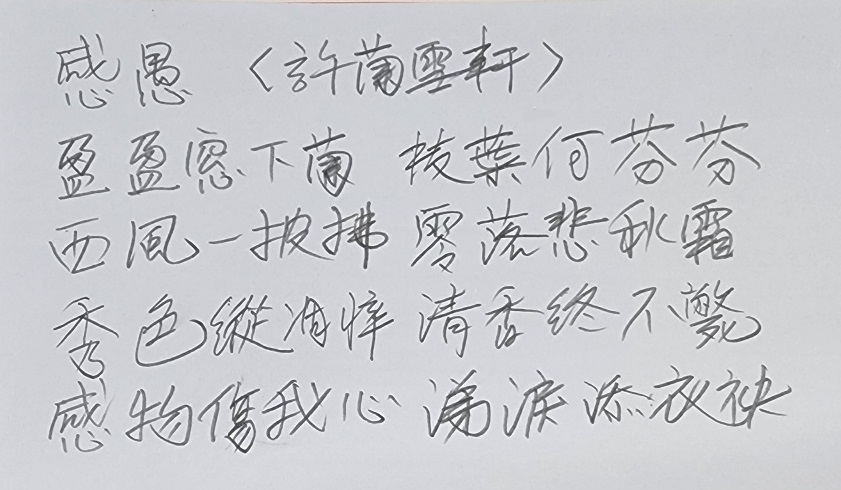 感愚 〈許蘭雪軒〉
盈盈窓下蘭 枝葉何芬芬
西風一披拂 零落悲秋霜
秀色縱凋悴 清香終不斃
感物傷我心 涕淚添衣袂